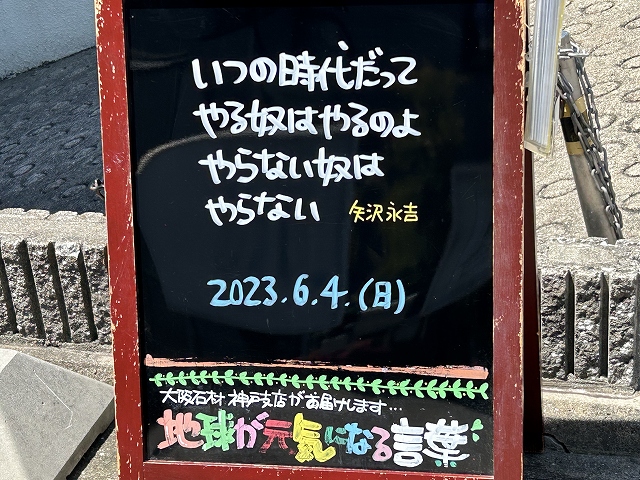 いつの時代だって
やる奴はやるのよ
やらない奴は
やらない 矢沢永吉
2023.6.4.(日)
大阪石材神戸支店がお届けします...
地球が元気になる言葉